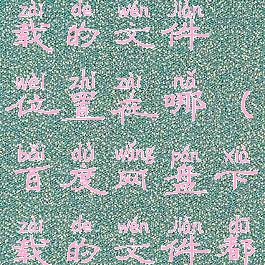 zài de wén jiàn
载的文件
wèi zhì zài nǎ
位置在哪（
bǎi dù wǎng pán xià
百度网盘下
zài de wén jiàn dū
载的文件都